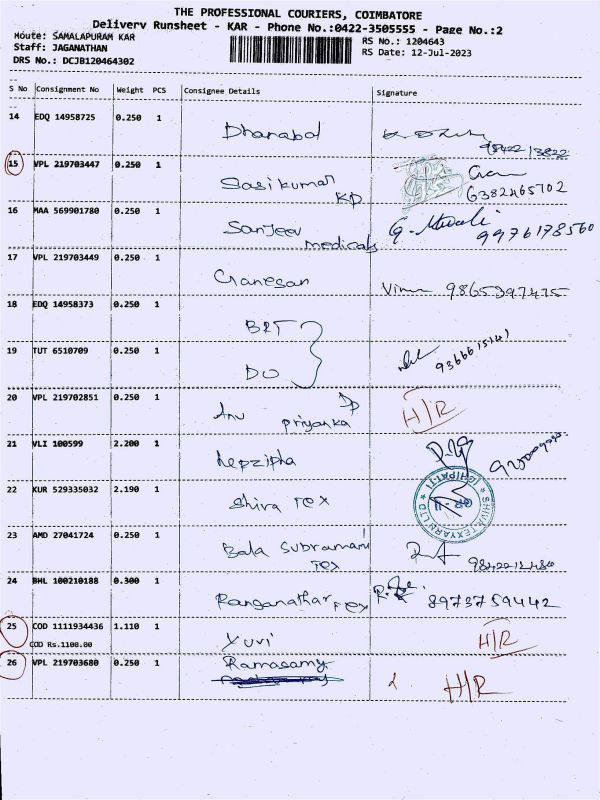 THE PROFESSIONAL COURIERS, COIMBATORE
Delivery Runsheet - KAR - Phone No.:0422-3505555 - Page No.:2
Route: SAMALAPURAM KAR
RS No.: 1204643
Staff: JAGANATHAN
RS Date: 12-Jul-2023
DRS No.: DCJB120464302
S No Consignment No Weight PCS Consignee Details Signature
14 EDQ 14958725 0.250 1 Dhanabal
98422 13822
15 VPL 219703447 0.250 1 Sasikumar
KP 6382465702
16 MAA 569901780 0.250 1 Sanjeev
medicals 9976178560
17 VPL 219703449 0.250 1 Ganesan
18 EDQ 14958373 0.250 1 BRT
19 TUT 6510709 0.250 1 DO
20 VPL 219702851 0.250 1 Anu
priyanka H/R
21 VLI 100599 2.200 1 hepzipha
22 KUR 529335032 2.190 1 Shiva Tex
SHIVA TEXYARN LTD
23 AMD 27041724 0.250 1 Bala Subramani
Tex
24 BHL 100210188 0.300 1 Ranganathar Tex 8973759442
25 COD 1111934436 1.110 1 Yuvi H/R
COD Rs.1100.00
26 VPL 219703680 0.250 1 Ramasamy
H/R